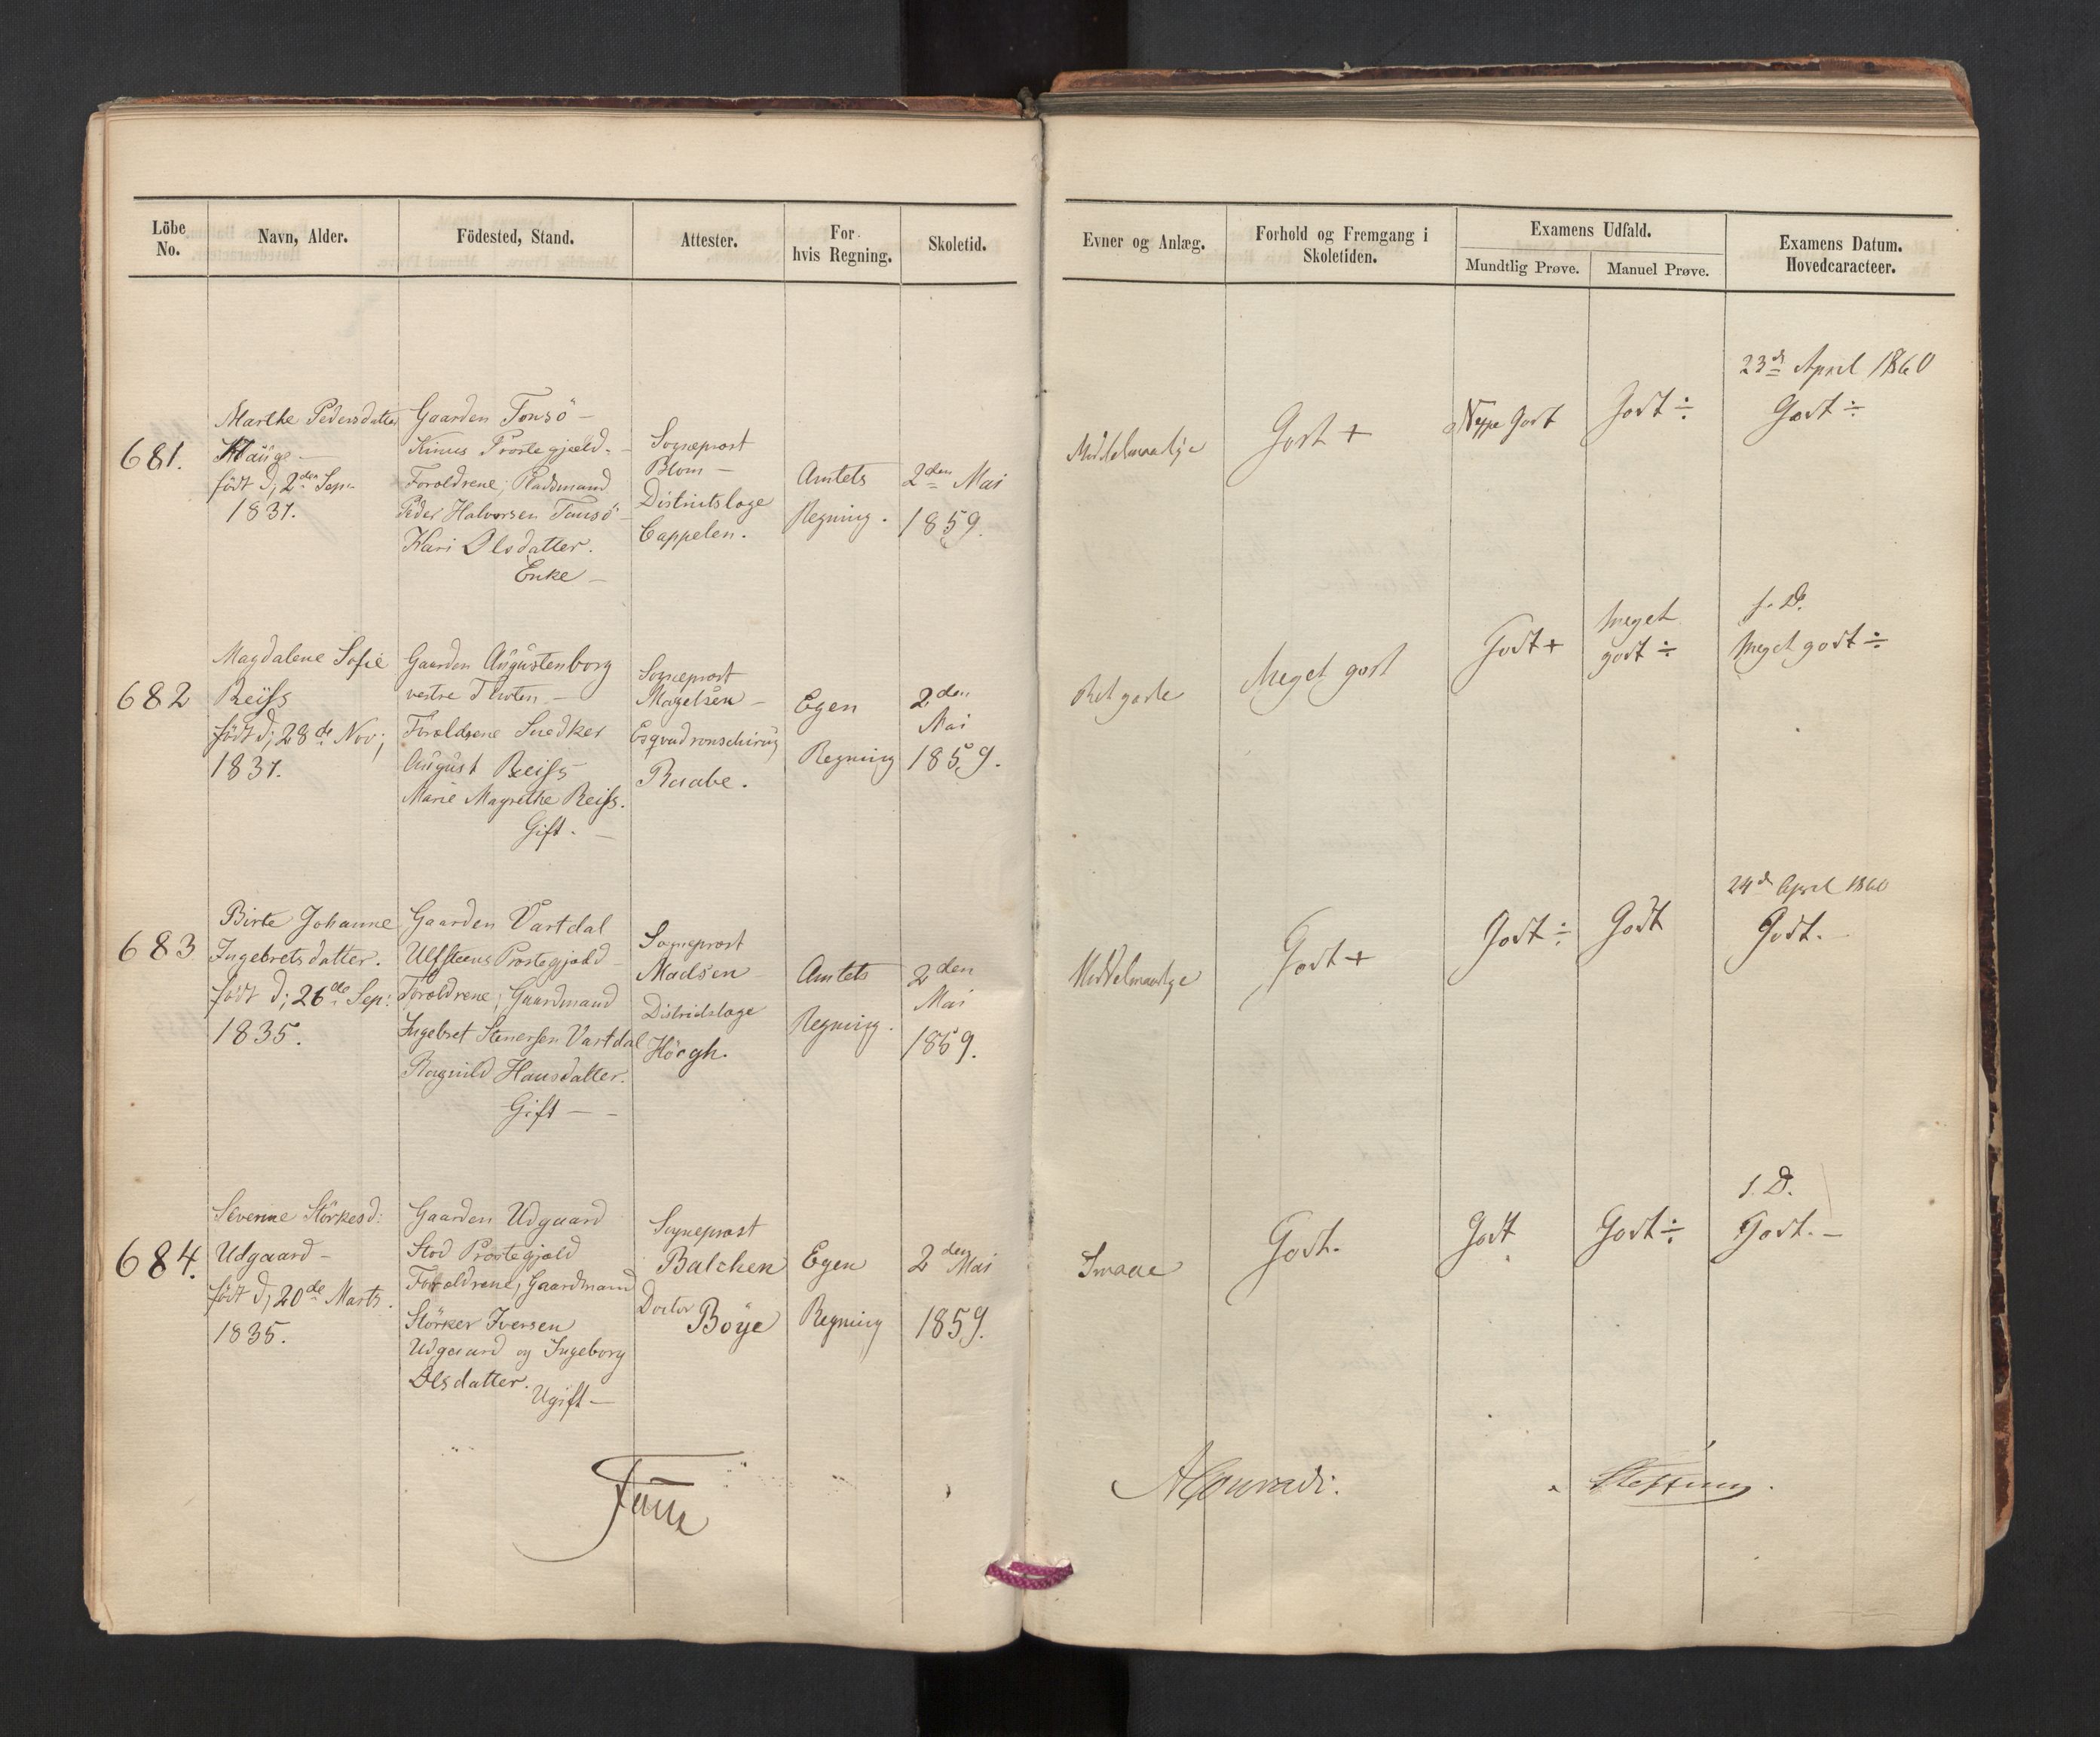 Löbe No.
Navn, Alder.
Födested, Stand.
Attester.
For hvis Regning.
Skoletid.
Evner og Anlæg.
Forhold og Fremgang i Skoletiden.
Examens Udfald.
Mundtlig Prøve.
Manuel Prøve.
Examens Datum. Hovedcaracteer.
681.
Marthe Pedersdatter
Hauge —
født d; 2den Sep.
1837.
Gaarden Tonsö —
Kinns Præstegjæld. —
Forældrene; Pladsmand
Peder Halvorsen Tonsö —
Kari Olsdatter.
Enke —
Sogneprest
Blom —
Districtslæge
Cappelen.
Amtets
Regning.
2den Mai
1859.
Middelmaadige
Godt +
Neppe Godt
Godt ÷
23de April 1860
Godt ÷
682
Magdalene Sofie
Reiss
født d; 28de Nov;
1837.
Gaarden Augustenborg
vestre Thoten —
Forældrene Snedker
August Reiss
Marie Magrethe Reiss.
Gift. —
Sogneprest
Magelsen —
Esqvadronschirug
Raabe.
Egen
Regning
2den
Mai
1859.
Ret gode
Meget godt
Godt +
Meget
godt ÷
s. D.
Meget godt ÷
683
Birte Johanne
Ingebretsdatter.
født d; 26de Sep:
1835.
Gaarden Vartdal
Ulfsteens Præstegjæld —
Forældrene; Gaardmand
Ingebret Stenersen Vartdal
Ragnild Hansdatter.
Gift — —
Sogneprest
Madsen —
Distridslæge
Höegh.
Amtets
Regning.
2den
Mai
1859.
Middelmaadige
Godt +
Godt ÷
Godt
24de April 1860
Godt. —
684.
Severine Störkesd:
Udgaard —
født d; 20de Marts.
1835.
Gaarden Udgaard
Stod Præstegjæld
Forældrene; Gaardmand
Störker Iversen
Udgaard og Ingeborg
Olsdatter.
Ugift —
Sogneprest
Balchen
Doctor
Boye
Egen
Regning
2den Mai
1859.
Smaae
Godt.
Godt
Godt ÷
s. D.
Godt. —
Faye
AConradi.
Steffens.